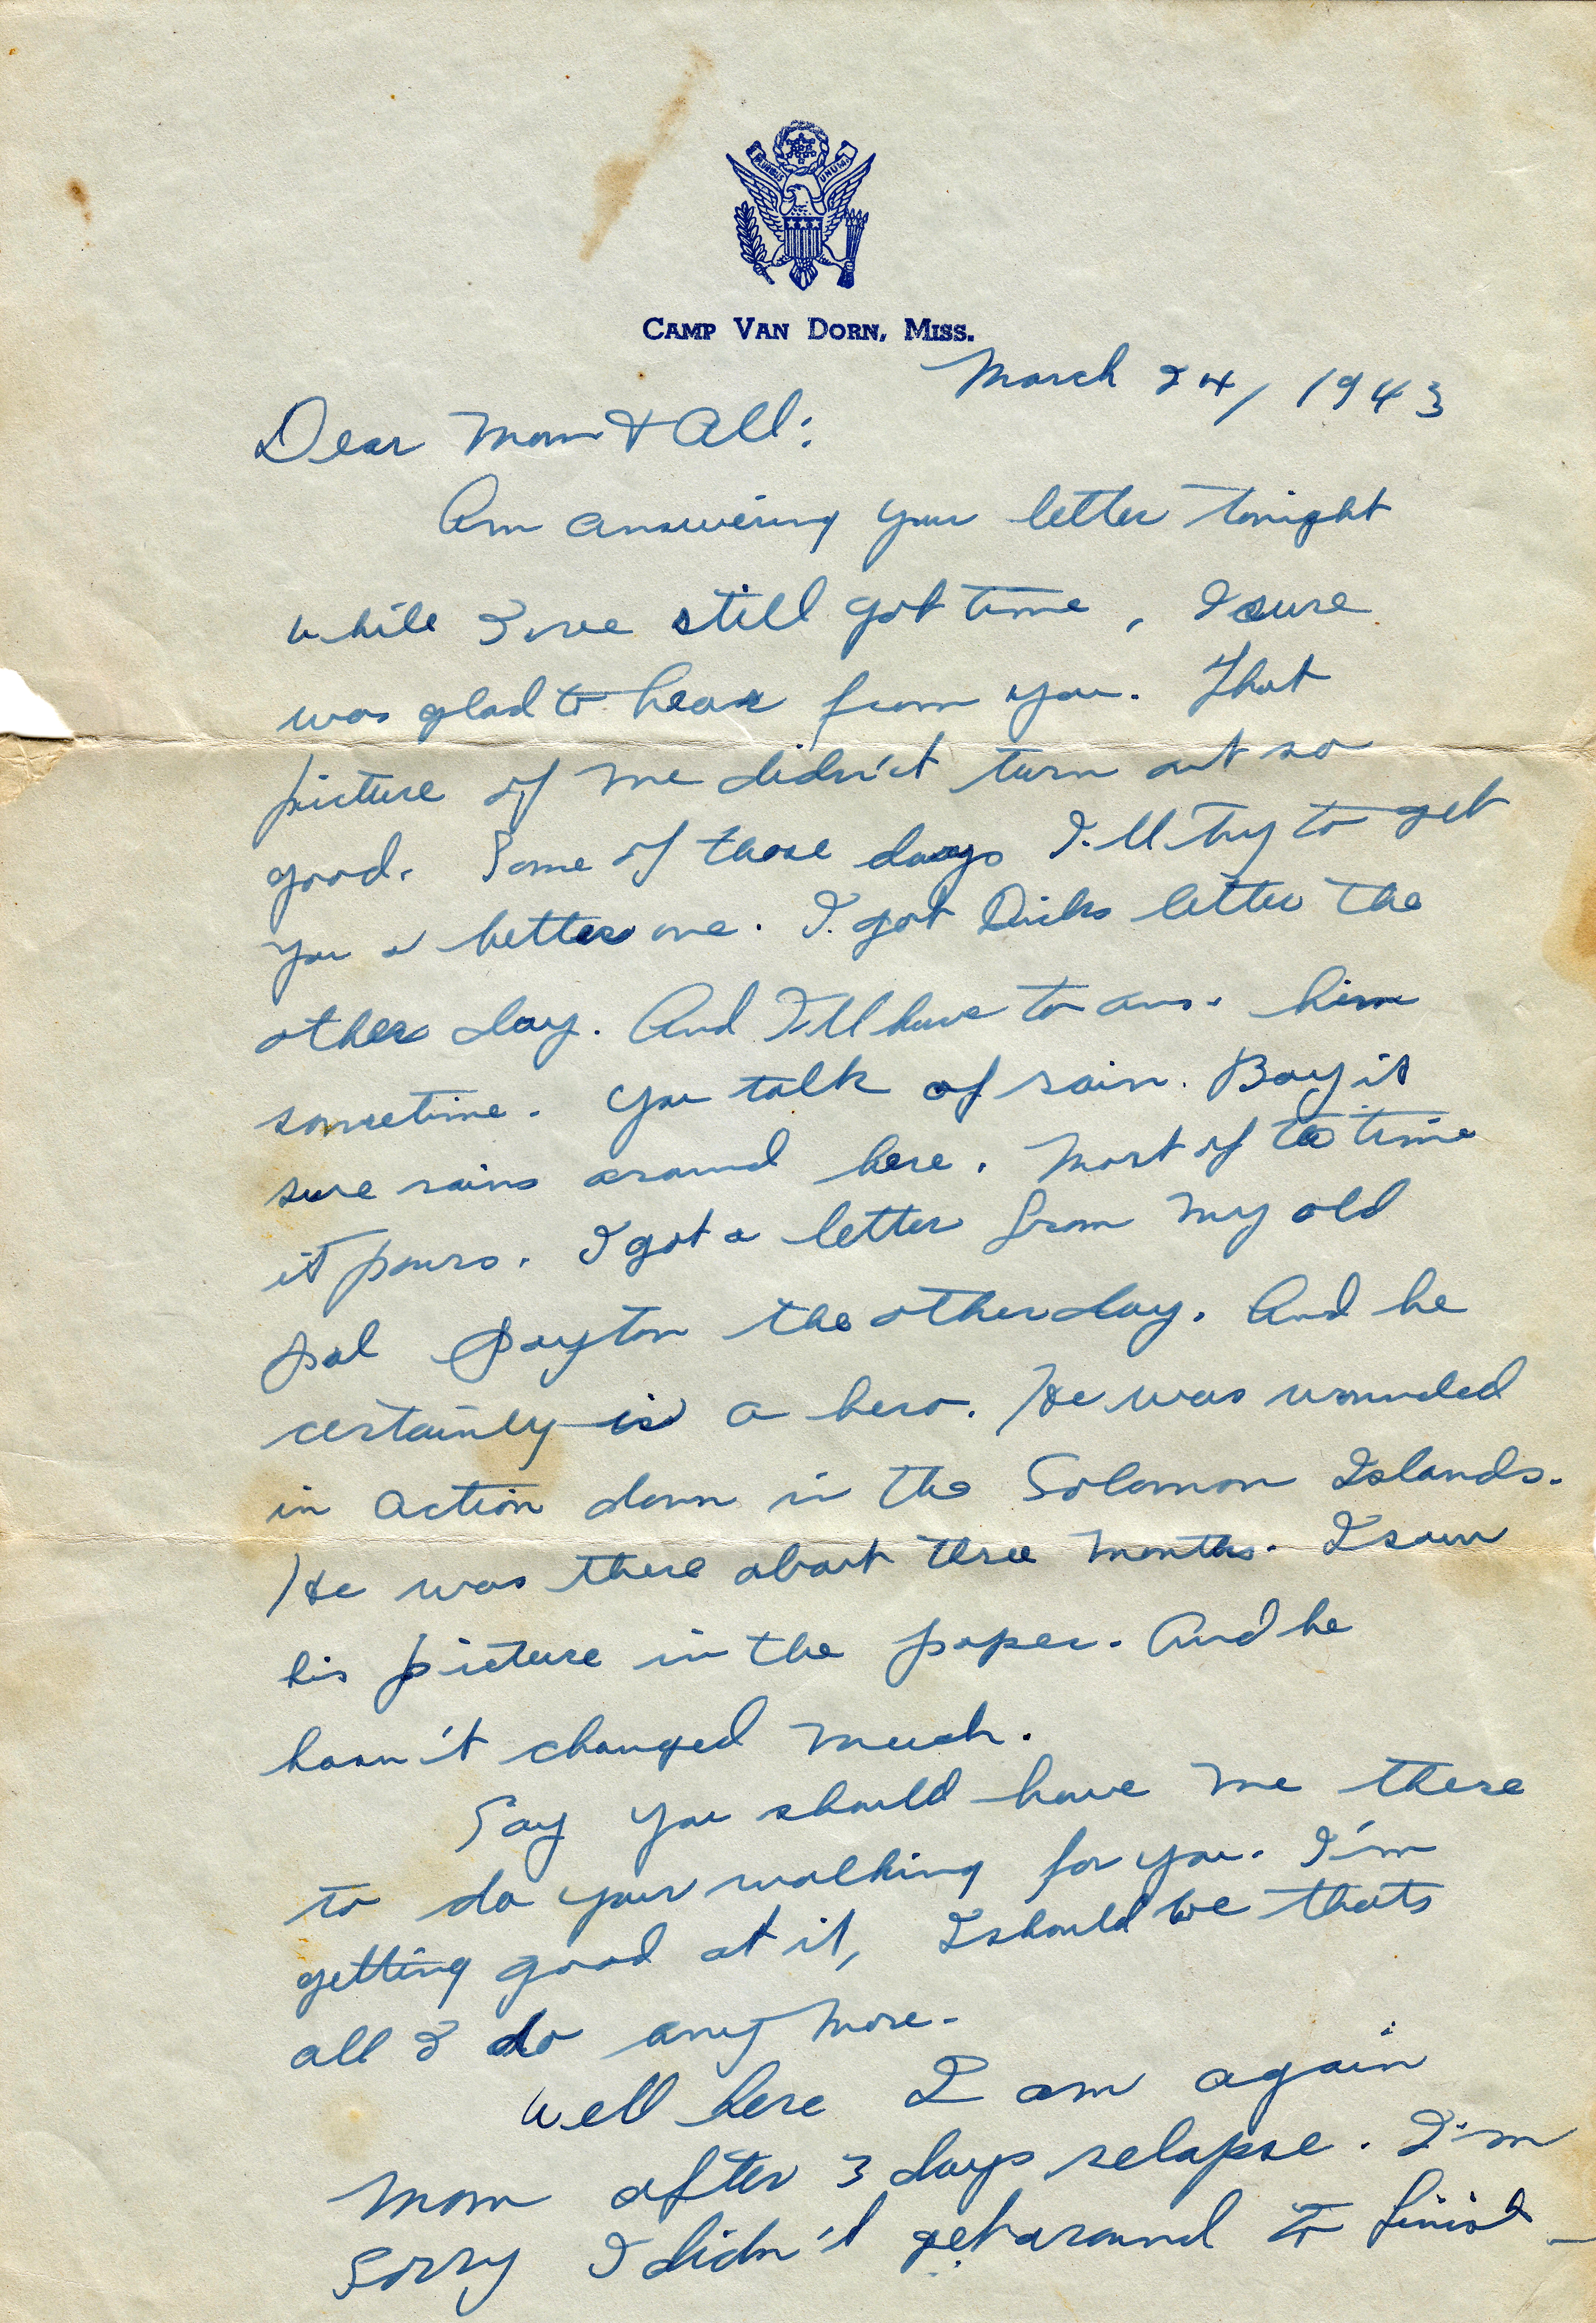 PLURIBUS UNUM
CAMP VAN DORN, MISS.
March 24, 1943
Dear Mom & All:
Am answering your letter tonight
while I've still got time, I sure
was glad to hear from you. That
picture of me didn't turn out so
good. Some of these days I'll try to get
you a better one. I got Dicks letter the
other day. And I'll have to ans. him
sometime. You talk of rain. Boy it
sure rains around here. Most of the time
it pours. I got a letter from my old
pal Payton the other day. And he
certainly is a hero. He was wounded
in action down in the Solomon Islands.
He was there about three months. I saw
his picture in the paper. And he
hasn't changed much.
Say you should have me there
to do your walking for you. I'm
getting good at it, I should be thats
all I do any more.
Well here I am again
Mom after 3 days relapse. I'm
Sorry I didn't get around to finish -